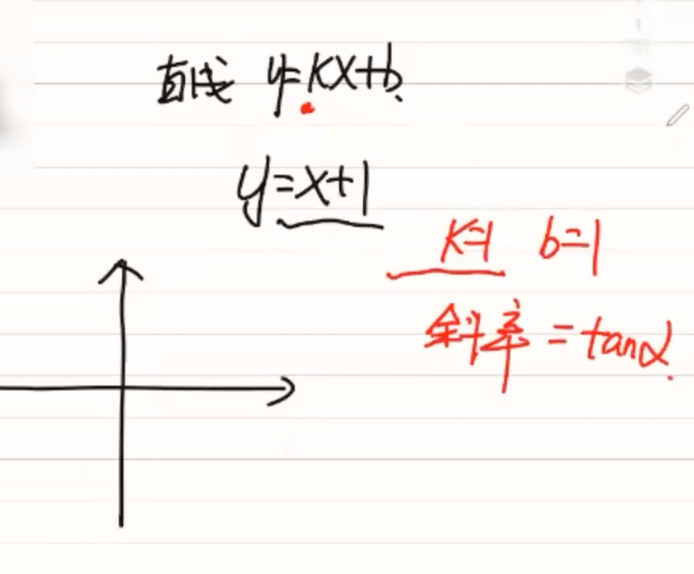 直线 y=kx+b
y=x+1
k=1 b=1
斜率=tanα